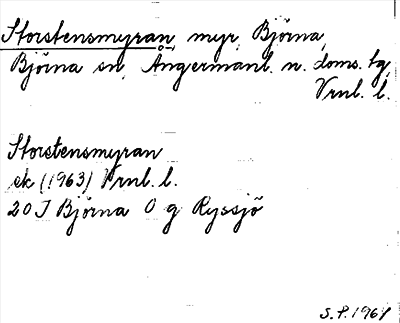 Storstensmyran, myr, Björna,
Björna sn, Ångermanl. n. doms. tg,
Vrnl. l.
Storstensmyran
ek (1963) Vrnl. l.
20 J Björna O g Ryssjö
S.P. 1967